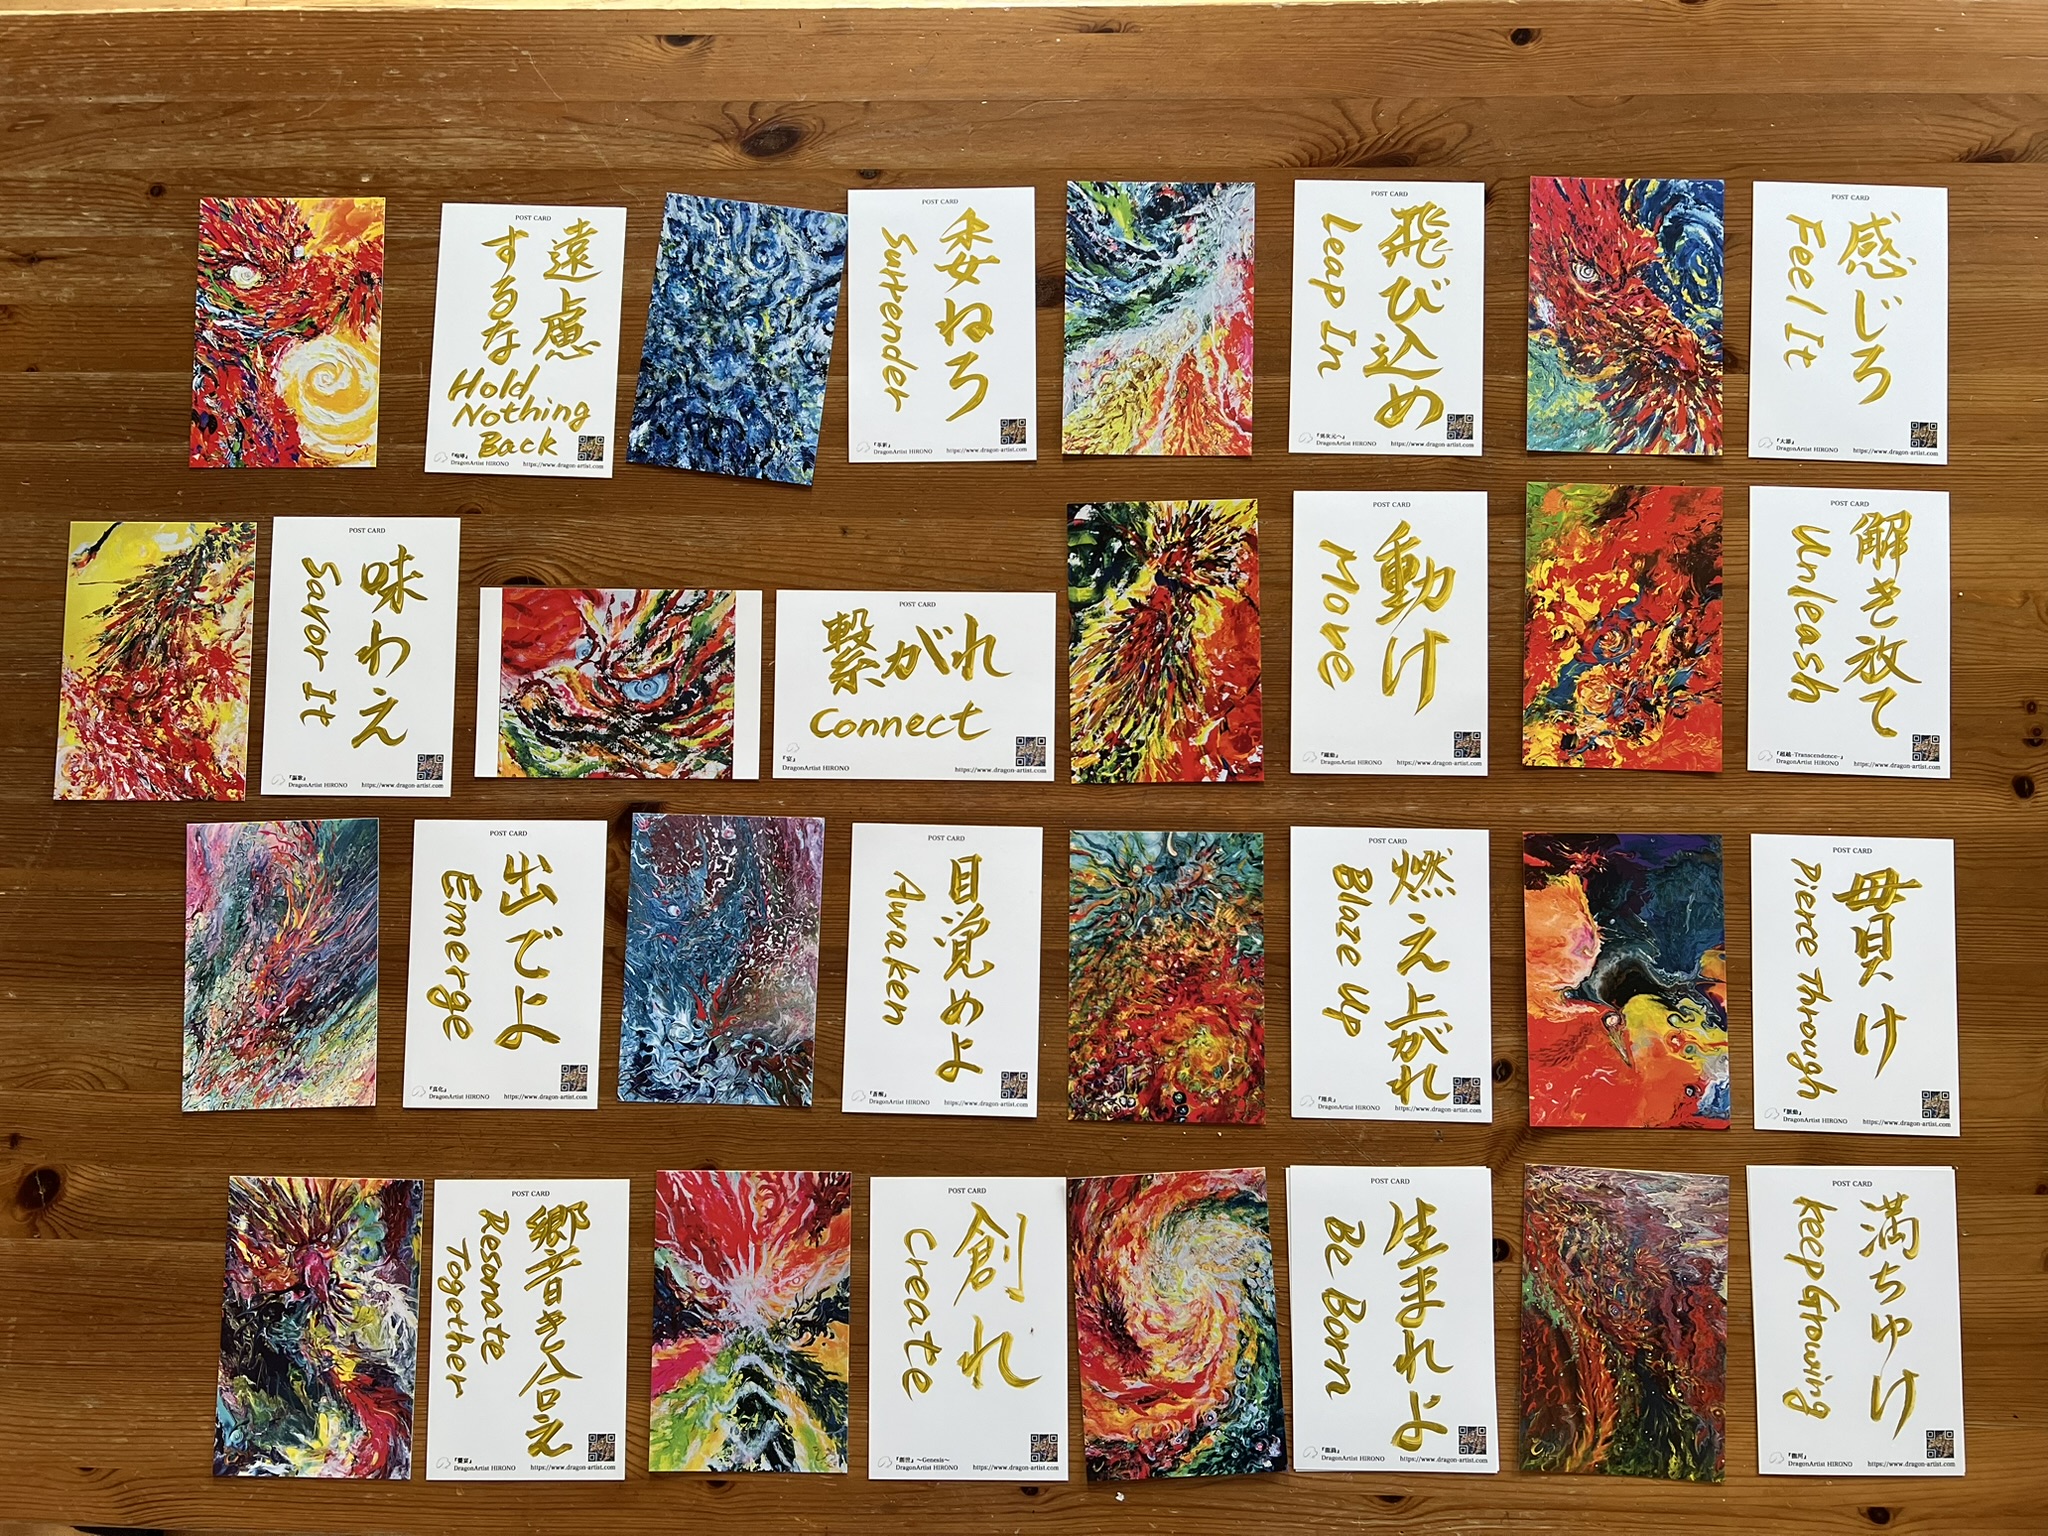 POST CARD
遠慮
するな
Hold
Nothing
Back
DragonArtist HIRONO
https://www.dragon-artist.com
POST CARD
委ねろ
Surrender
『革新』
DragonArtist HIRONO
https://www.dragon-artist.com
POST CARD
飛び込め
Leap In
DragonArtist HIRONO
https://www.dragon-artist.com
POST CARD
感じろ
Feel It
DragonArtist HIRONO
https://www.dragon-artist.com
POST CARD
味わえ
Savor It
『謳歌』
DragonArtist HIRONO
https://www.dragon-artist.com
POST CARD
繋がれ
Connect
『宴』
DragonArtist HIRONO
https://www.dragon-artist.com
POST CARD
動け
Move
DragonArtist HIRONO
https://www.dragon-artist.com
POST CARD
解き放て
Unleash
『超越-Transcendence-』
DragonArtist HIRONO
https://www.dragon-artist.com
POST CARD
出でよ
Emerge
DragonArtist HIRONO
https://www.dragon-artist.com
POST CARD
目覚めよ
Awaken
DragonArtist HIRONO
https://www.dragon-artist.com
POST CARD
燃え上がれ
Blaze Up
DragonArtist HIRONO
https://www.dragon-artist.com
POST CARD
貫け
Pierce Through
DragonArtist HIRONO
https://www.dragon-artist.com
POST CARD
響き合え
Resonate
Together
DragonArtist HIRONO
https://www.dragon-artist.com
POST CARD
創れ
Create
『創世』～Genesis～
DragonArtist HIRONO
https://www.dragon-artist.com
POST CARD
生まれよ
Be Born
DragonArtist HIRONO
https://www.dragon-artist.com
POST CARD
満ちゆけ
Keep Growing
DragonArtist HIRONO
https://www.dragon-artist.com